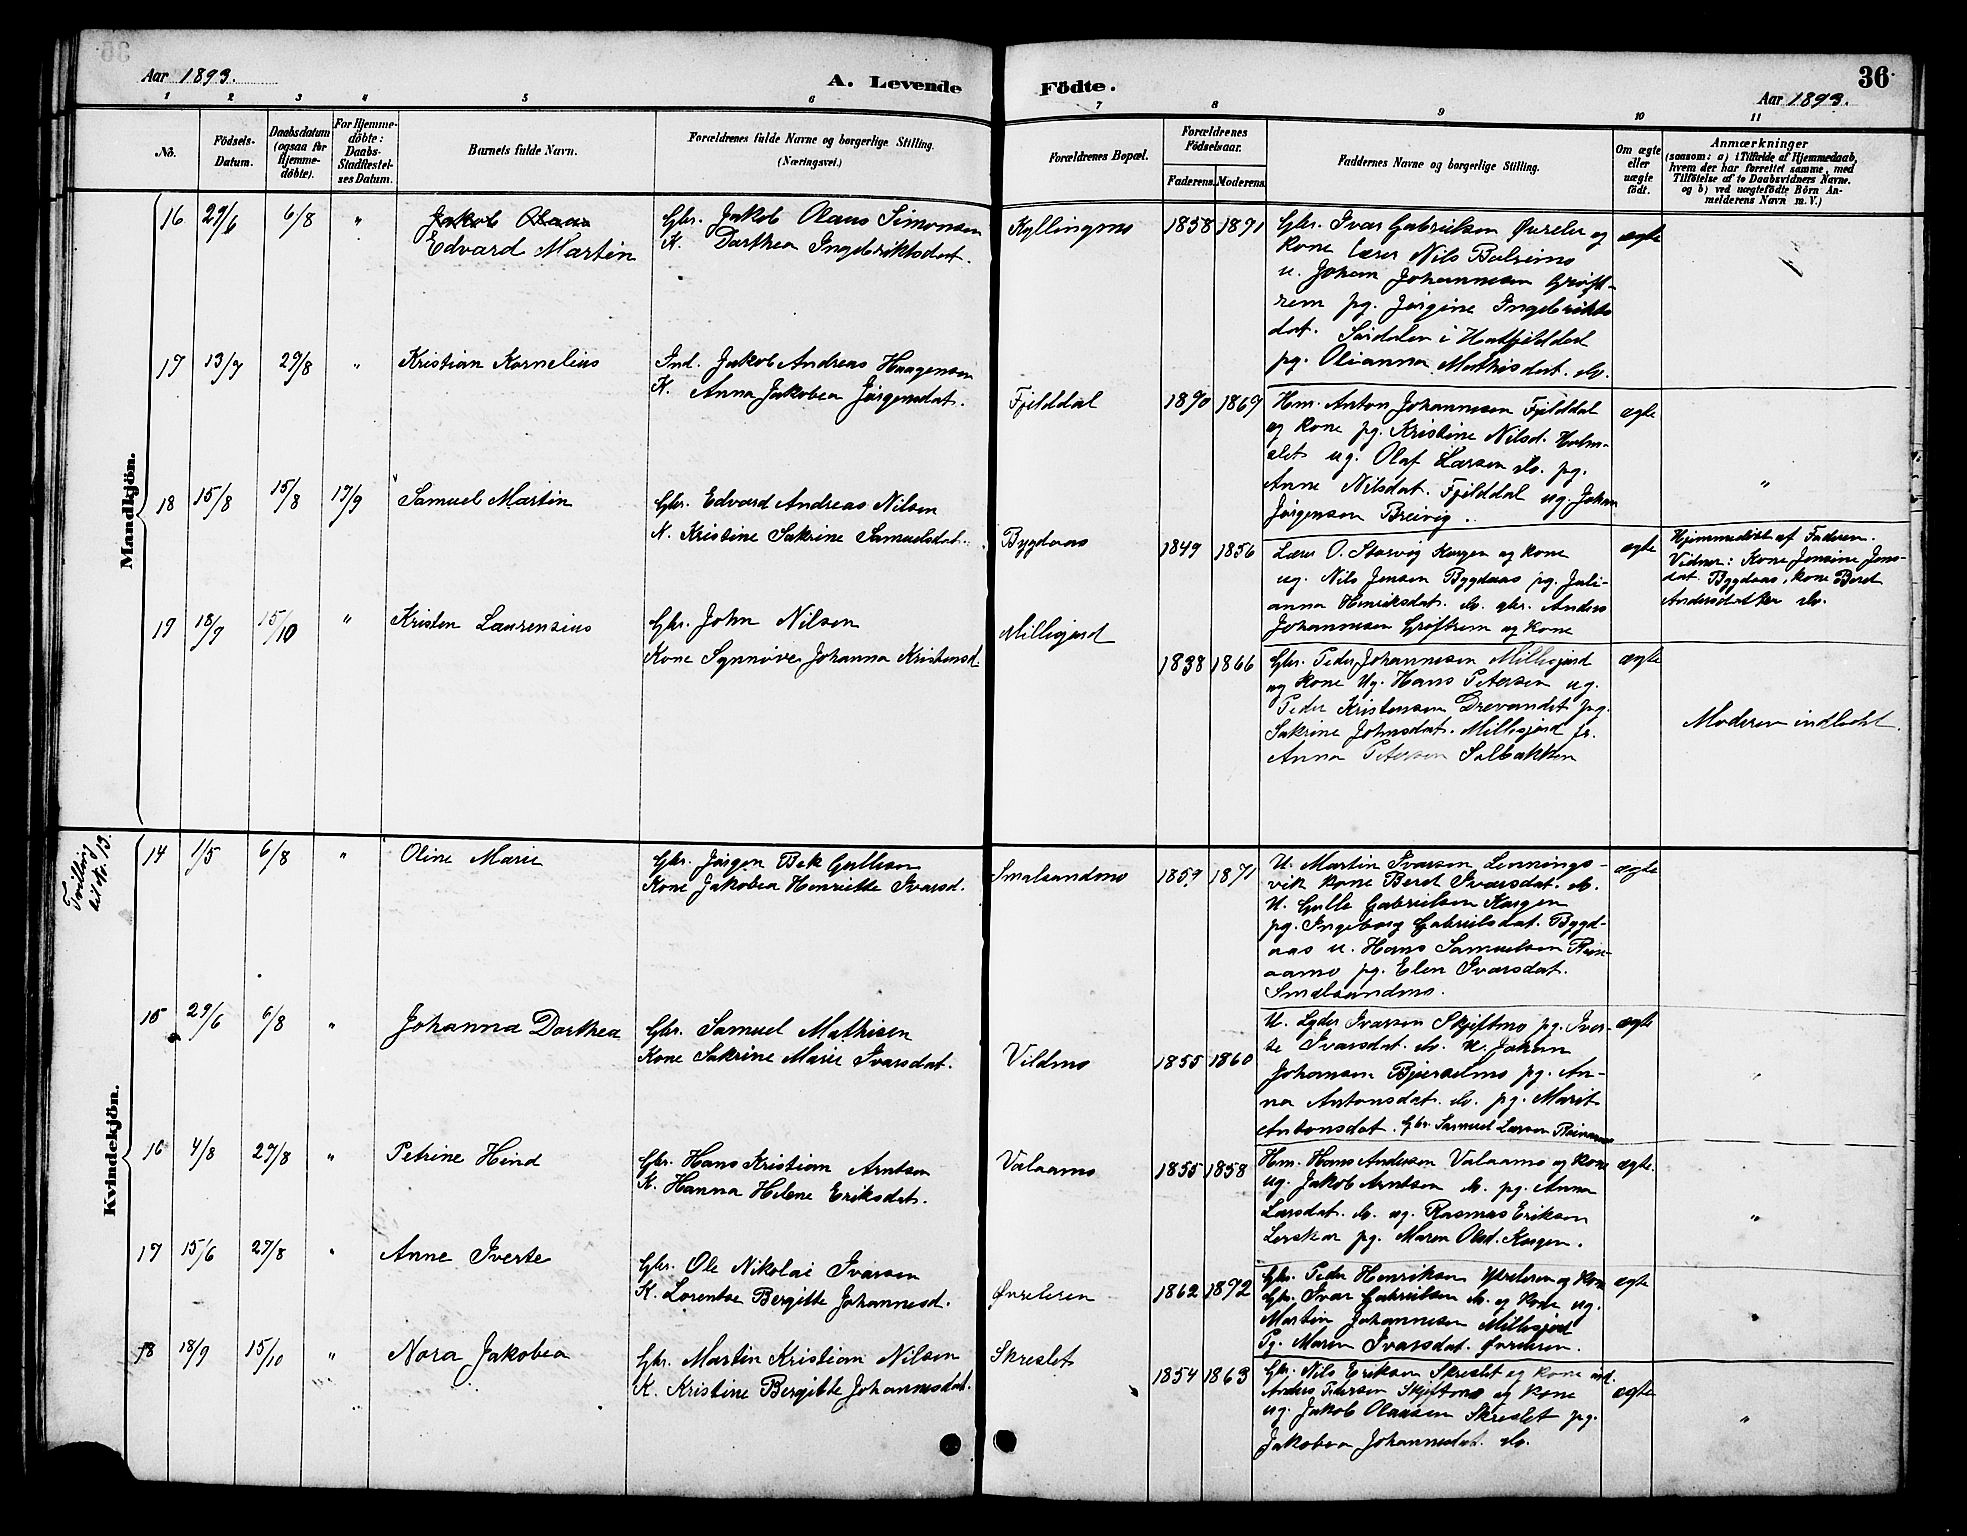 36
Aar 1893.
A. Levende Födte.
Aar 1893.
1 2 3 4 5 6 7 8 9 10 11
No.
Födsels-Datum.
Daabsdatum (ogsaa for Hjemme-döbte).
For Hjemme-döbte: Daabs-Stadfæstel-ses Datum.
Barnets fulde Navn.
Forældrenes fulde Navne og borgerlige Stilling. (Næringsvei.)
Forældrenes Bopæl.
Forældrenes Födselsaar.
Faderens. Moderens.
Faddernes Navne og borgerlige Stilling.
Om ægte eller uægte födt.
Anmærkninger
(saasom: a) i Tilfælde af Hjemmedaab, hvem der har forrettet samme, med Tilföielse af to Daabsvidners Navne, og b) ved uægtefödte Börn An-melderens Navn m. V.)
Mandkjön.
16 29/6 6/8 " Jakob Olaus
Edvard Martin
Gbr. Jakob Olaus Simonsen
K. Dorthea Ingebriktsdat.
Kyllingmo 1858 1871
Gbr. Ivar Gabrielsen Øvreler og
Kone Lærer Nils Bolseimo
u. Johan Johannesen Grøft-
rem pg. Jørgine Ingebrikts
dat. Sørdalen i Hatfjelddal
pg. Olianna Mathisdat. do.
ægte
17 13/7 29/8 " Kristian Kornelius
Ind. Jakob Andreas Haagensen
K. Anna Jakobea Jørgensdat.
Fjelddal 1890 1869
Hm. Anton Johannesen Fjelddal
og Kone pg. Kristine Nilsd. Holm-
slet ug. Olaf Larsen do. pg.
Anne Nilsdat. Fjelddal ug. Johan
Jørgensen Breivig.
ægte "
18 15/8 15/8 17/9 Samuel Martin
Gbr. Edvard Andreas Nilsen
K. Kristine Sakrine Samuelsdat.
Bygdaas 1849 1856
Lærer O. Storvig Korgen og Kone
ug. Nils Jensen Bygdaas pg. Juli-
anna Henriksdat. do. gbr. Anders
Johannesen Grøftrem og Kone
ægte
Hjemmedøbt af Faderen.
Vidner: Kone Jensine Jens-
dat. Bygdaas, kone Beret
Andersdatter do.
19 18/9 15/10 " Kristen Laurensius
Gbr. John Nilsen
Kone Synnøve Johanna Kristensd.
Millisjord 1838 1866
Gbr. Peder Johannesen Millisjord
og Kone Ug. Hans Petersen ug.
Peder Kristensen Drevandet pg.
Sakrine Johnsdat. Millisjord pg.
Anna Petersen Solbakken
ægte
Moderen indledet.
Kvindekjön.
Tvilling til No. 13.
14 1/5 6/8 " Oline Marie
Gbr. Jørgen Bek Gullesen
Kone Jakobea Henriette Ivarsd.
Smalsundmo 1859 1871
U. Martin Ivarsen Lennings-
vik kone Beret Ivarsdat. do.
U. Gulle Gabrielsen Korgen
pg. Ingeborg Gabrielsdat. Bygd-
aas u. Hans Samuelsen Rein-
aamo pg. Elen Ivarsdat.
Smalsundmo.
ægte
15 29/6 6/8 " Johanna Dorthea
Gbr. Samuel Mathisen
Kone Sakrine Marie Ivarsdat.
Vildmo 1855 1860
U. Lyder Ivarsen Skjeftmo pg. Iver-
te Ivarsdat. do. U. Johan
Johansen Bjerselmo pg. An-
na Antonsdat. do. pg. Marit
Antonsdat. Gbr. Samuel Larsen Reinaamo
ægte
16 4/8 27/8 " Petrine Hind
Gbr. Hans Kristian Arntsen
K. Hanna Helene Eriksdat.
Valaamo 1855 1858
Hm. Hans Andersen Valaamo og Kone
ug. Jakob Arntsen do. pg. Anna
Larsdat. do. ug. Rasmus Eriksen
Lerskar pg. Maren Olsd. Korgen.
ægte. "
17 15/6 27/8 " Anne Iverte
Gbr. Ole Nikolai Ivarsen
K. Lorentse Bergitte Johannesd.
Øvreleren 1862 1892
Gbr. Peder Henriksen Ytreleren og Kone
Gbr. Ivar Gabrielsen do. og Kone ug.
Martin Johannesen Millisjord
Pg. Maren Ivarsdat. Øvreleren.
ægte
18 18/9 15/10 " Nora Jakobea
Gbr. Martin Kristian Nilsen
K. Kristine Bergitte Johannesdat.
Skreslet 1854 1863
Gbr. Nils Eriksen Skreslet og Kone ind.
Anders Pedersen Skjeftmo og Kone
ug. Jakob Olausen Skreslet pg.
Jakobea Johannesdat. do.
ægte "